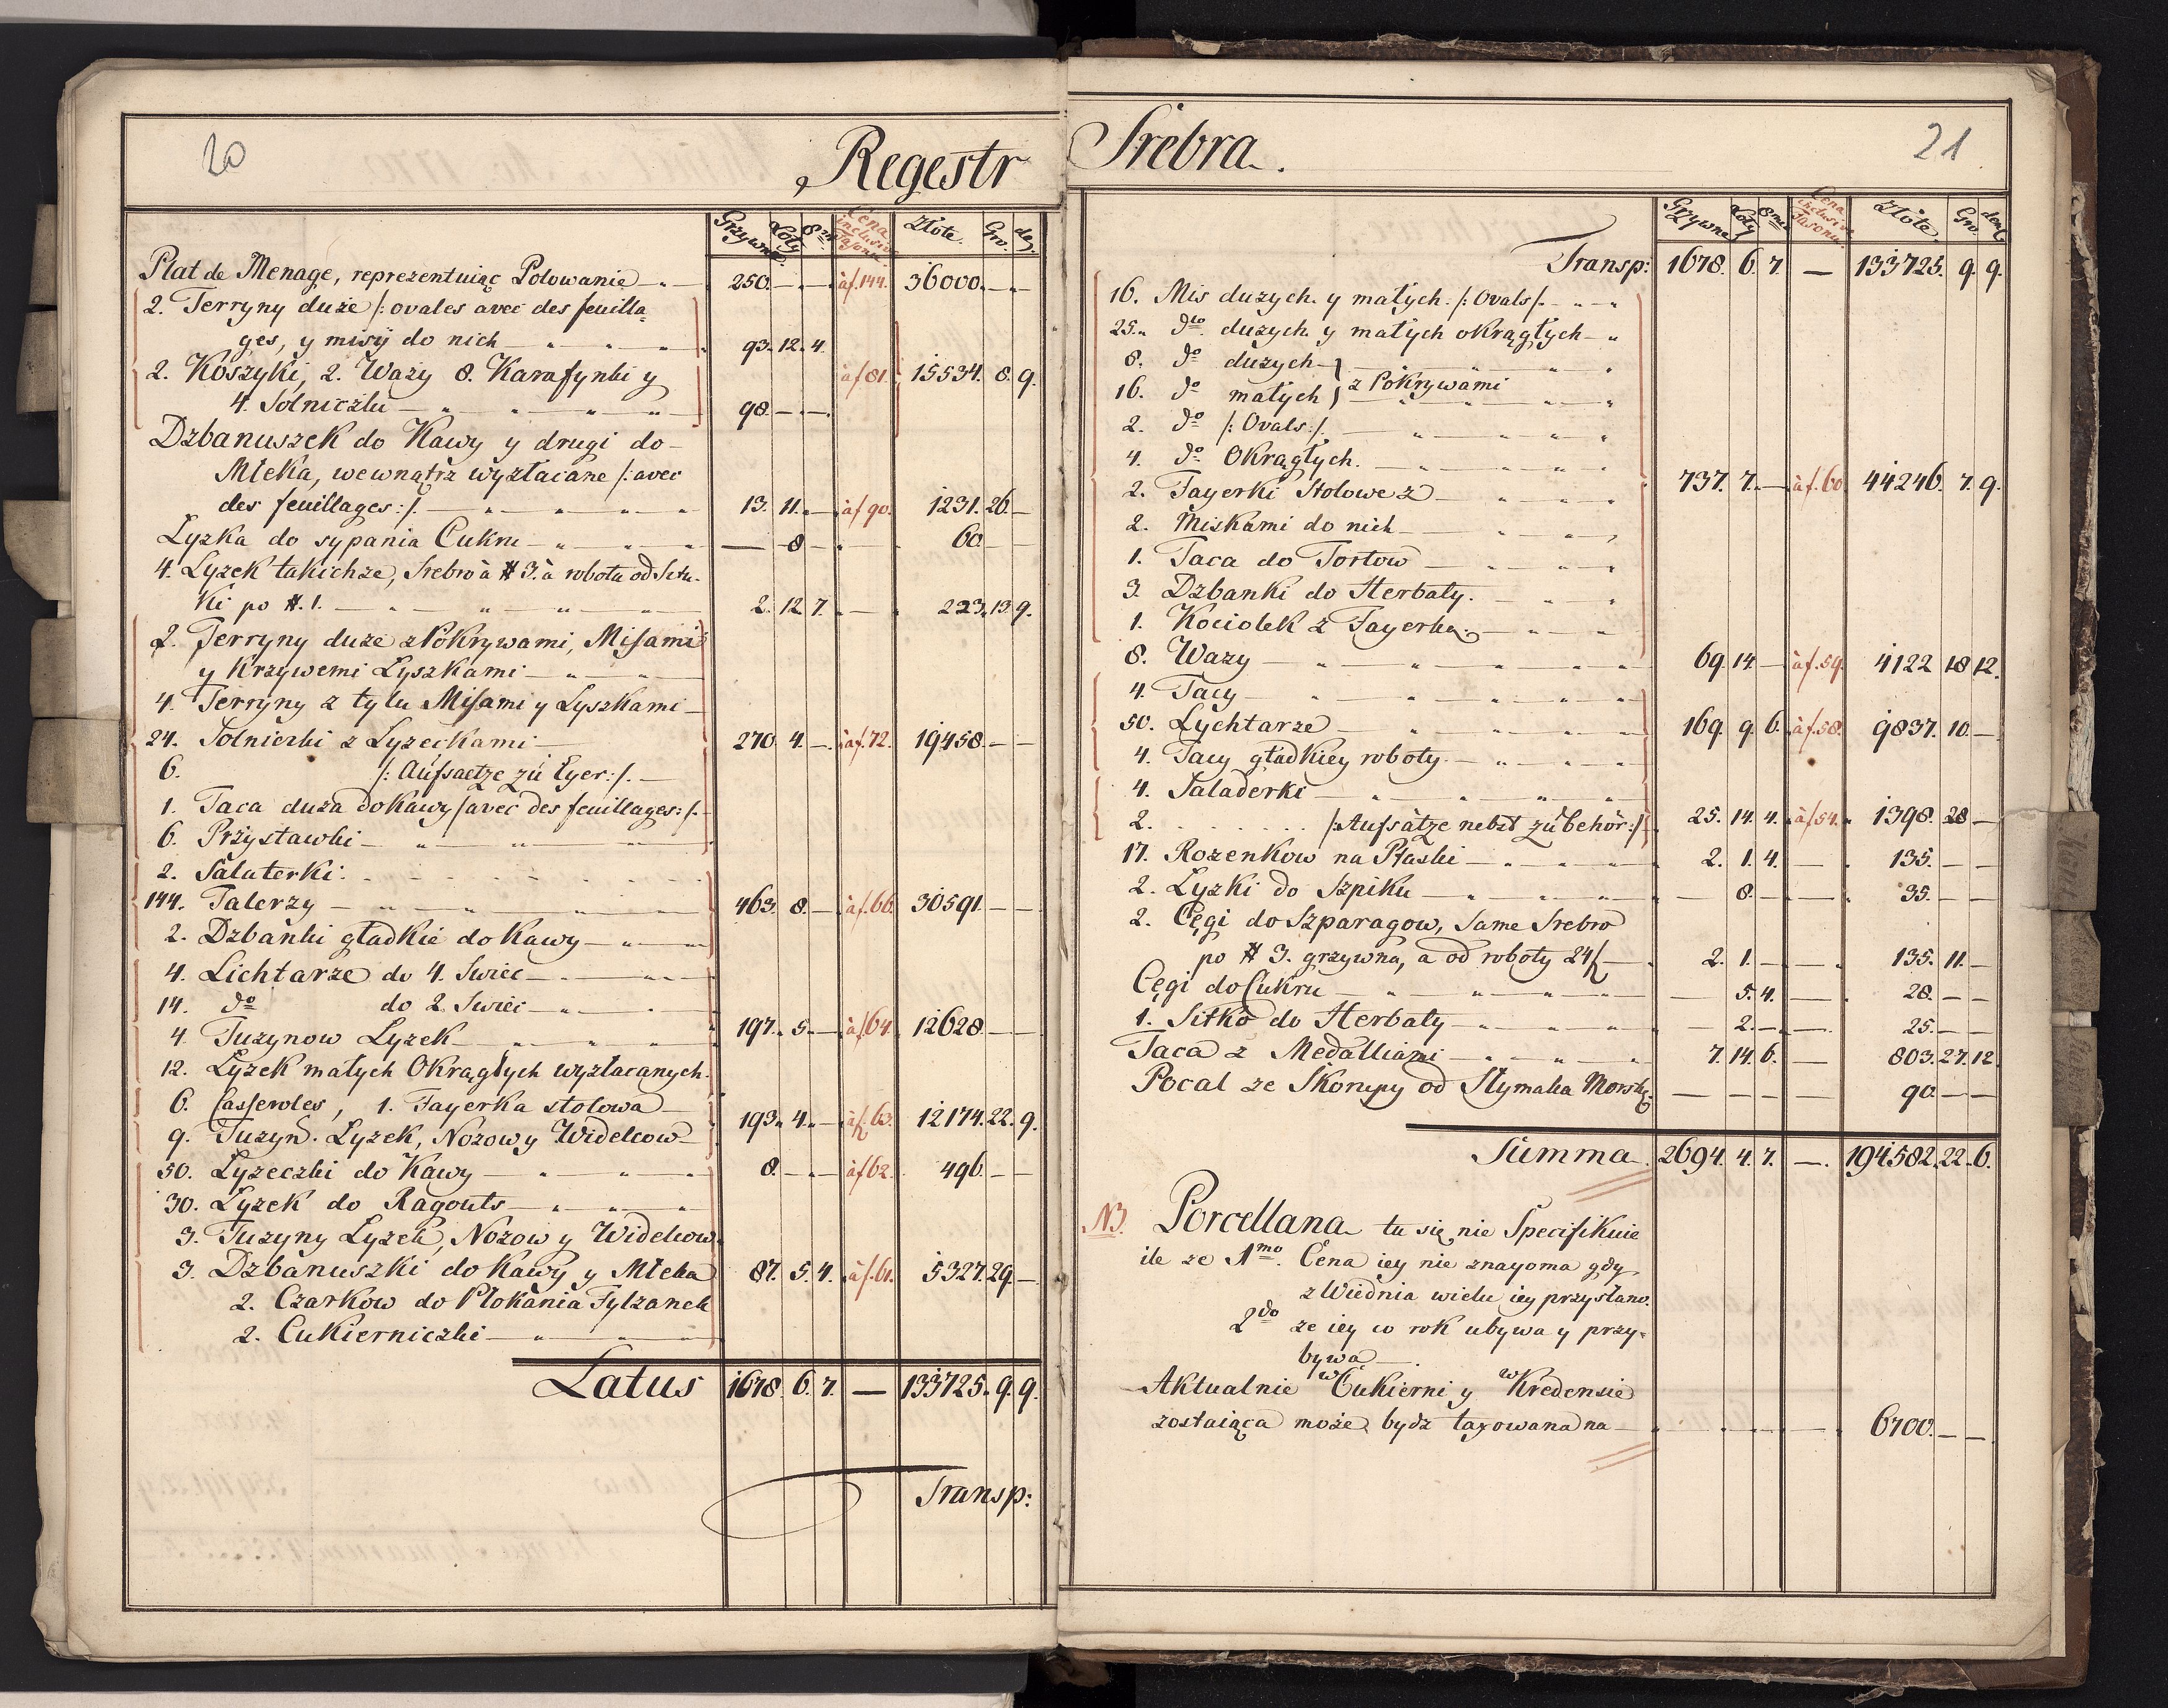 20
Regestr
Grzywn. Loty 8me Cena inclusive Fasonu Złote. Gro. den.
Plat de Menage, reprezentuiąc Polowanie 250. — — à f. 144. 36000. — —
2. Terryny duże /: ovales avec des feuilla-
ges, y misy do nich 93. 12. 4.
2. Koszyki, 2. Wazy 8. Karafynki y à f 81. 15534. 8. 9.
4. Solniczki 98. — —
Dzbanuszek do Kawy y drugi do
Mleka, wewnątrz wyzłacane /: avec
des feuillages :/. 13. 11. — à f 90. 1231. 26. —
Lyzka do sypania Cukru — 8 — 60.
4. Lyzek takichze, Srebro à # 3. à robota od Sztu-
ki po #. 1. 2. 12. 7. — 223. 13. 9.
2. Terryny duze z Pokrywami, Misami
y Krzywemi Lyszkami
4. Terryny z tylu Misami y Lyszkami
24. Solniczki z Lyzeckami 270. 4. — à f. 72. 19458. — —
6. /: Aufsaetze zü Eyer :/.
1. Taca duza do Kawy /avec des feuillages :/.
6. Przystawki
2. Salaterki
144. Talerzy 463. 8. — à f. 66. 30591. — —
2. Dzbanki gładkie do Kawy
4. Lichtarze do 4. Swiec
14. do do 2. Swiec
4. Tuzynow Lyzek 197. 5. — à f 64. 12628. — —
12. Lyzek małych Okrągłych wyzłacanych.
6. Casseroles, 1. Fayerka stolowa
9. Tuzyn. Lyzek, Nozow y Widelcow 193. 4. — à f. 63. 12174. 22. 9.
50. Lyzeczki do Kawy 8. — — à f 62. 496. — —
30. Lyzek do Ragouts
3. Tuzyny Lyzek, Nozow y Widelcow
3. Dzbanuszki do Kawy y Mleka 87. 5. 4. à f. 61. 5327. 29. —
2. Czarkow do Płokania Fylzanek
2. Cukierniczki
Latus 1678. 6. 7. — 133725. 9. 9.
Transp:
Srebra.
21
Grzywna Loty 8me Cena inclusive Fasonu Złote. Gro. den.
Transp: 1678. 6. 7. — 133725. 9. 9.
16. Mis duzych y małych /: Ovals /.
25. dto duzych y małych okrągłych
8. do duzych
16. do małych } z Pokrywami
2. do /: Ovals :/.
4. do Okrągłych.
2. Fayerki Stolowe z 737. 7. — à f. 60. 44246. 7. 9.
2. Miskami do nich
1. Taca do Tortow
3. Dzbanki do Herbaty.
1. Kociolek z Fayerką
8. Wazy 69. 14 — à f. 59. 4122 18 12.
4. Tacy
50. Lychtarze 169. 9. 6. à f. 58. 9837. 10. —
4. Tacy gładkiey roboty
4. Saladerki
2. . . . . . . /: Aufsätze nebst zübehör :/ 25. 14. 4. à f 54. 1398. 28 —
17. Rozenkow na Ptaski 2. 1. 4. — 135. — —
2. Lyzki do Szpiku — 8. — — 35. — —
2. Cęgi do Szparagow, Same Srebro
po # 3. grzywna, a od roboty 24 f 2. 1. — — 135. 11. —
Cęgi do Cukru — 5. 4. — 28. — —
1. Sitko do Herbaty — 2. — — 25. — —
Taca z Medalliami 7. 14. 6. — 803. 27. 12.
Pocal ze Skorupy od Slymaka Morsk. — — — — 90. — —
Summa. 2694. 4. 7. —. 194582. 22. 6.
NB. Porcellana tu się nie Specifikuie
ile ze 1mo. Cena iey nie znayoma gdy
z Wiednia wielu iey przysłano.
2do ze iey co rok ubywa y przy-
bywa.
Aktualnie w Cukierni y w Kredensie
zostaiąca może bydz taxowana na 6700. — —